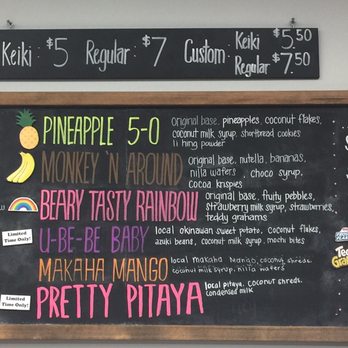 Keiki: $5 Regular: $7 Custom: Keiki $5.50
Regular $7.50
PINEAPPLE 5-0 original base, pineapples, coconut flakes,
coconut milk syrup, shortbread cookies
li hing powder
MONKEY 'N AROUND original base, nutella, bananas,
nilla wafers, choco syrup,
cocoa krispies
BEARY TASTY RAINBOW original base, fruity pebbles,
strawberry milk syrup, strawberries,
teddy grahams
Limited
Time Only!
U-BE-BE BABY local okinawan sweet potato, coconut flakes,
azuki beans, coconut milk syrup, mochi bites
MAKAHA MANGO local makaha mango, coconut shreds,
coconut milk syrup, nilla wafers
Limited
Time Only!
PRETTY PITAYA local pitaya, coconut shreds,
condensed milk